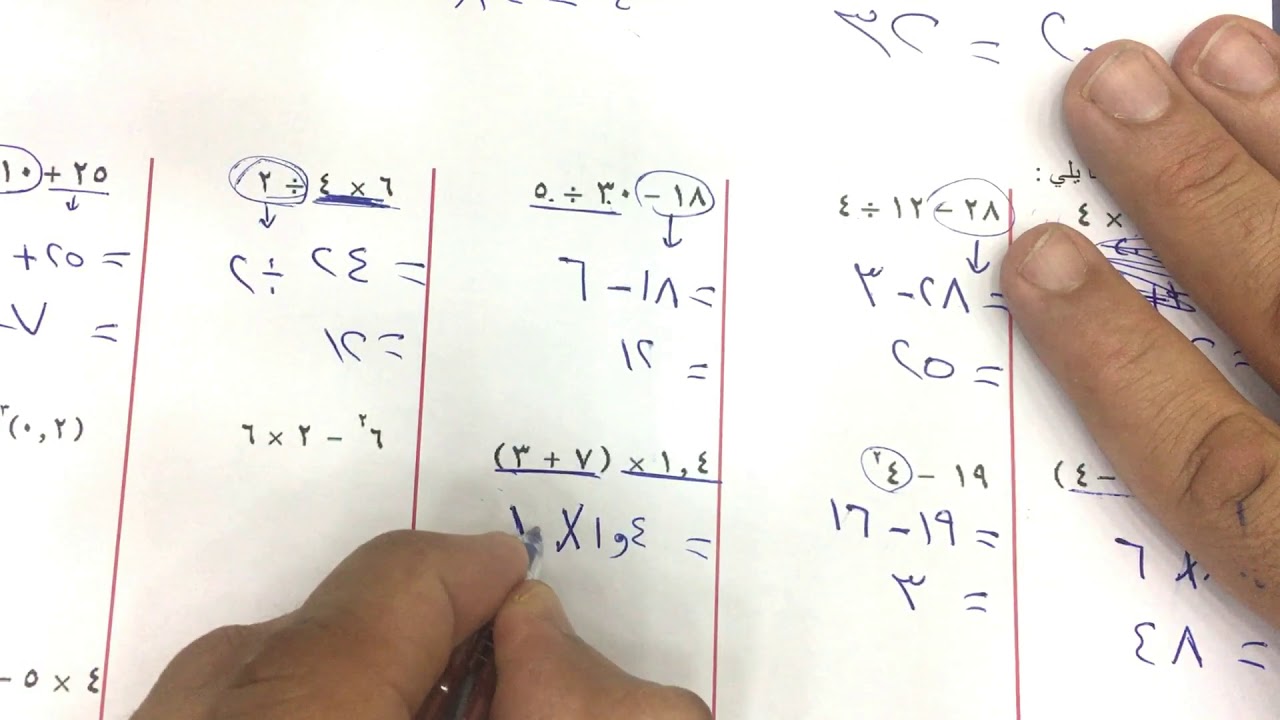 = ٣٢
يلي :
× ٤
٢٨ − ١٢ ÷ ٤
= ٢٨ − ٣
= ٢٥
١٩ − ٤²
= ١٩ − ١٦
= ٣
− ٤)
× ٦
= ٤٨
١٨ − ٣٠ ÷ ٥
= ١٨ − ٦
= ١٢
١,٤ × (٧ + ٣)
= ١,٤ × ١
٦ × ٤ ÷ ٢
= ٢٤ ÷ ٢
= ١٢
٦² − ٢ × ٦
٢٥ + ١٠
= ٢٥ +
= ٧ −
(٠,٢)³
٤ × ٥ −